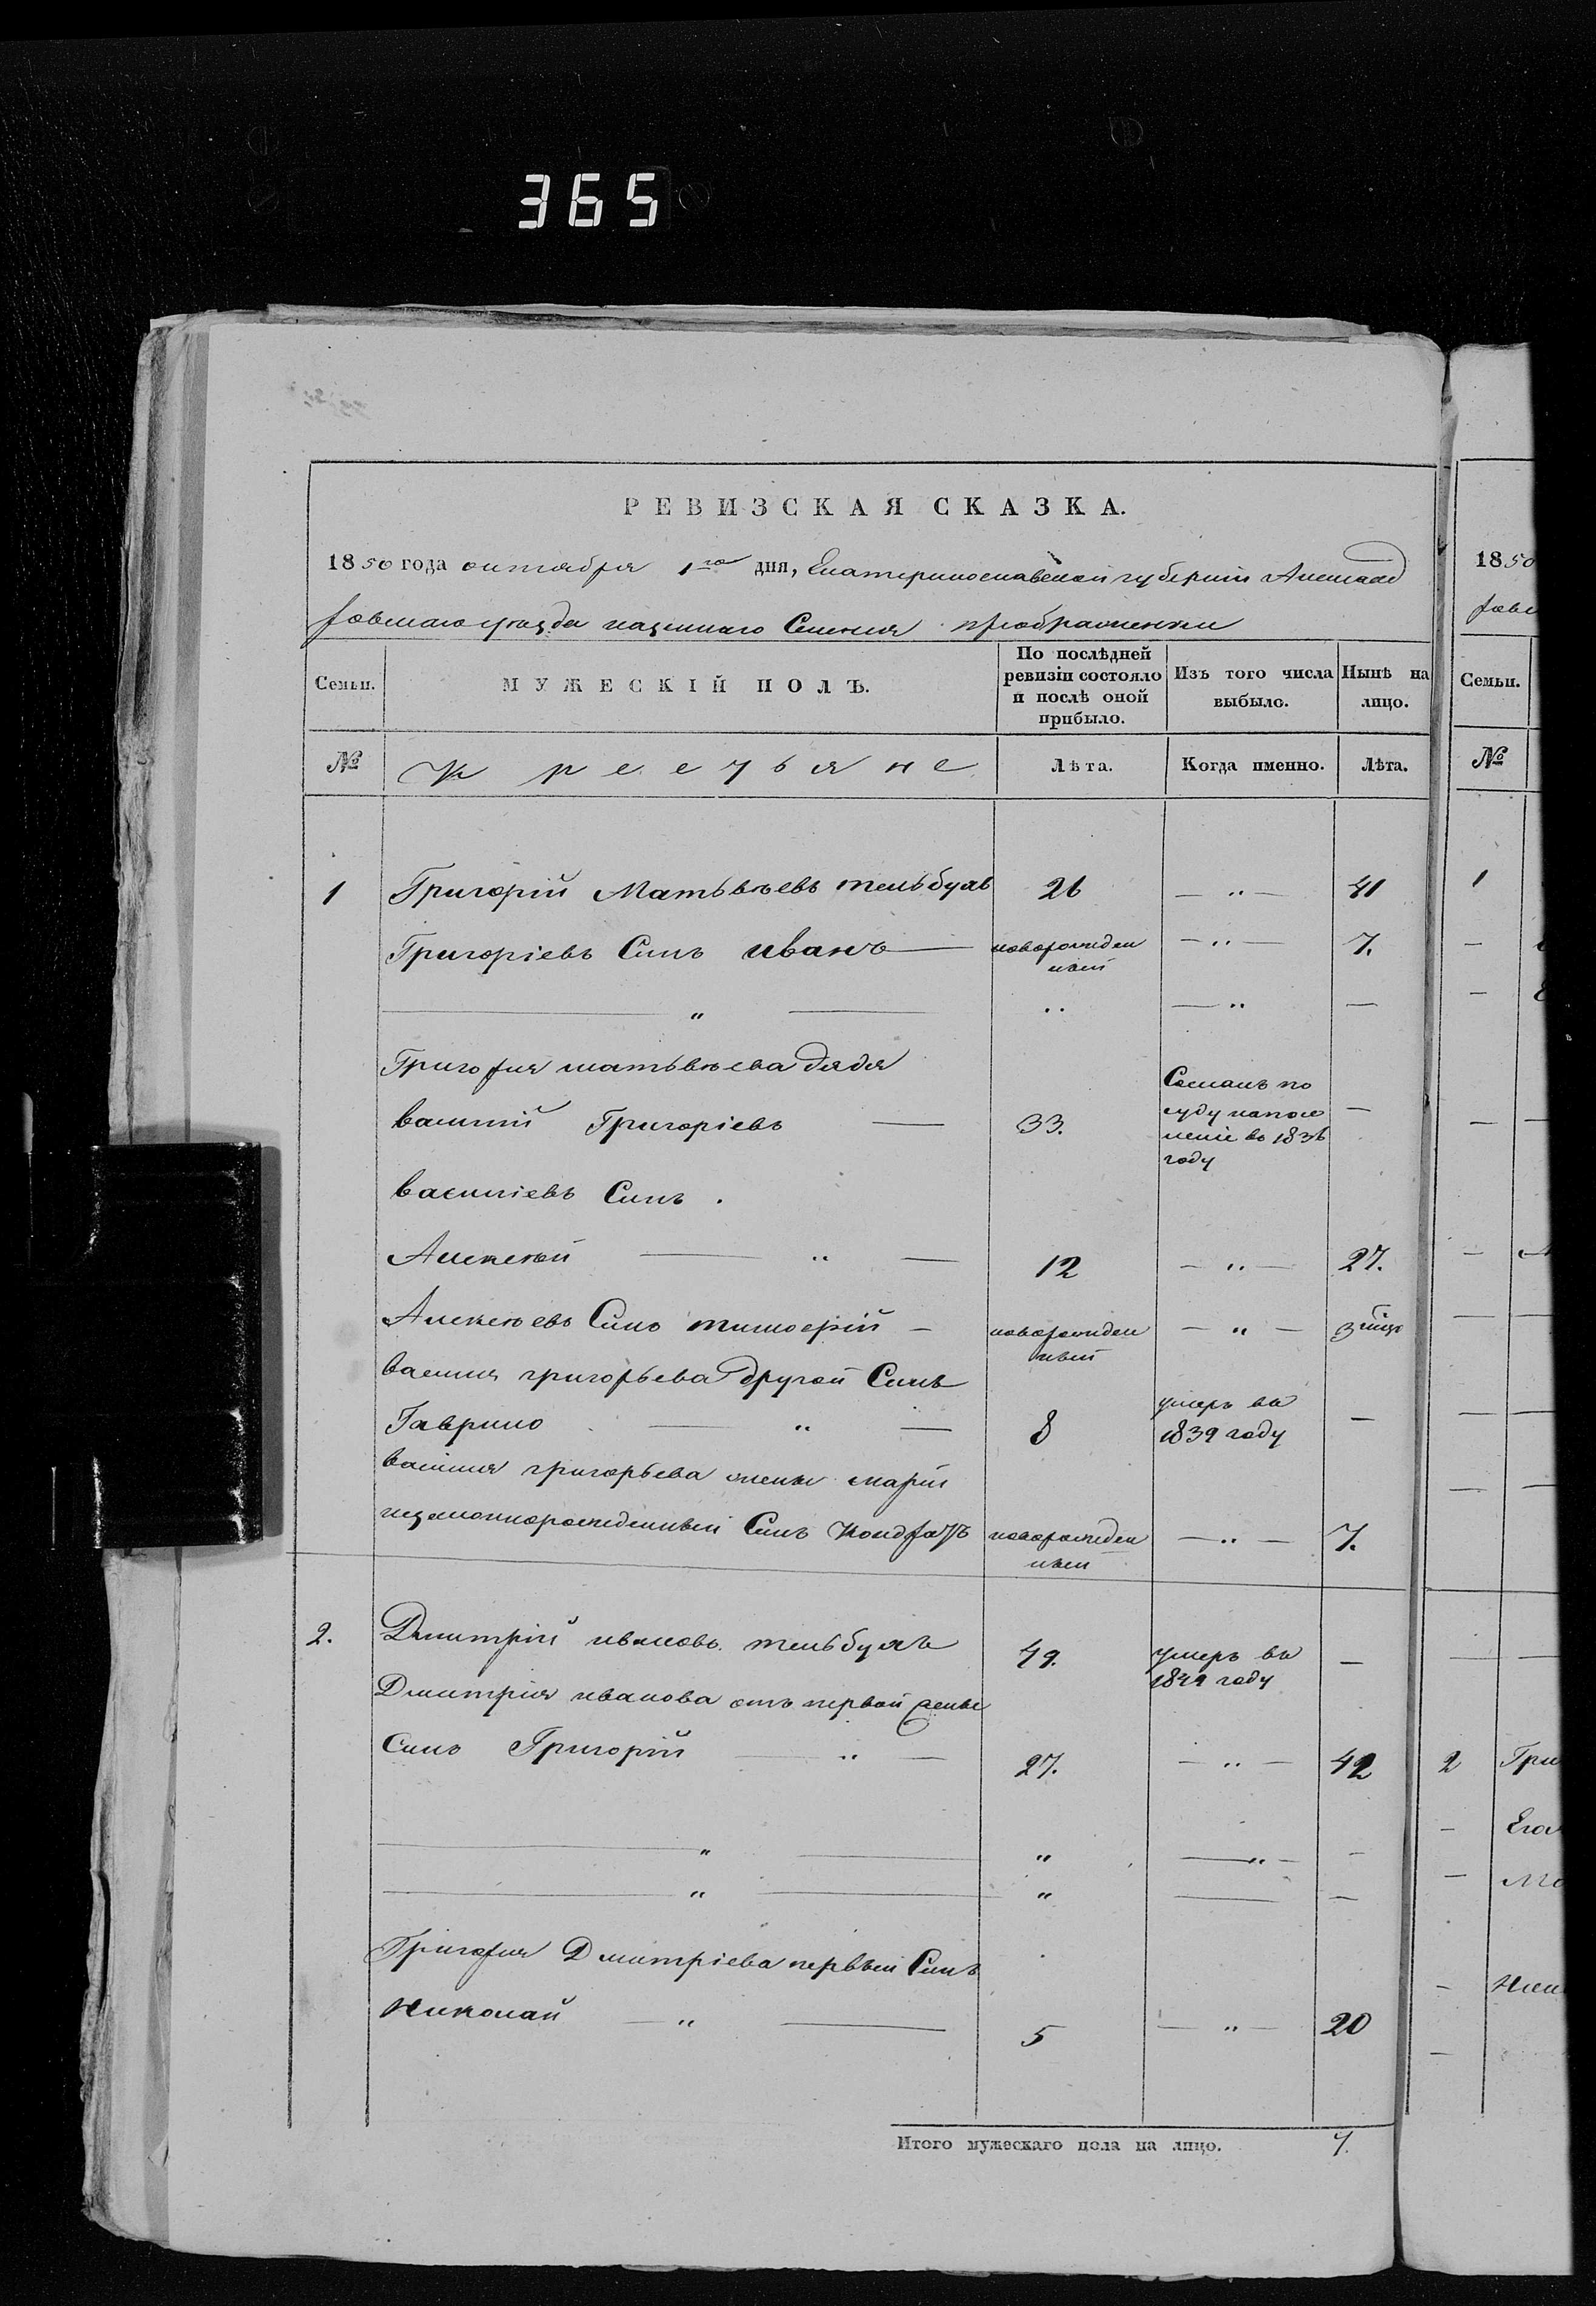 365
РЕВИЗСКАЯ СКАЗКА.
1850 года октября 1го дня, Екатеринославской губернии Александ
ровскаго уезда казеннаго Селения преображенки
Семьи.
МУЖЕСКІЙ ПОЛЪ.
По послѣдней ревизіи состояло и послѣ оной прибыло.
Изъ того числа выбыло.
Нынѣ на лицо.
№ Крестьяне Лѣта. Когда именно. Лѣта.
1 Григорій Матьвѣевъ тельбухъ 26 — " — 41
Григоріевъ Синъ иванъ — новорожден — " — 7.
ный
— " — " — " —
Григория матьвѣева дядя
василий Григоріевъ — 33. Сосланъ по суду напосе ление во 1836 году —
василіевъ Синъ .
Алексѣй — " — 12 — " — 27.
Алексѣевъ Синъ тимофрій — новорожден — " — 3
ный
василия григорьева другой Синъ
Гаврило — " — 8 умеръ въ 1839 году —
василия григорьева жены марии
незаконнорожденный Синъ Кондратъ новорожден — " — 7.
ный
2. Дмитрій ивановъ тельбухъ 49. умеръ въ 1849 году —
Дмитрия иванова отъ первой жены
Синъ Григорій — " — 27. — " — 42
— " — " — " —
— " — " — —
Григория Дмитріева первый Синъ
Николай — " — 5 — " — 20
Итого мужескаго пола на лицо. 7.
1850
рові
Семьи.
№
1
2 Гри